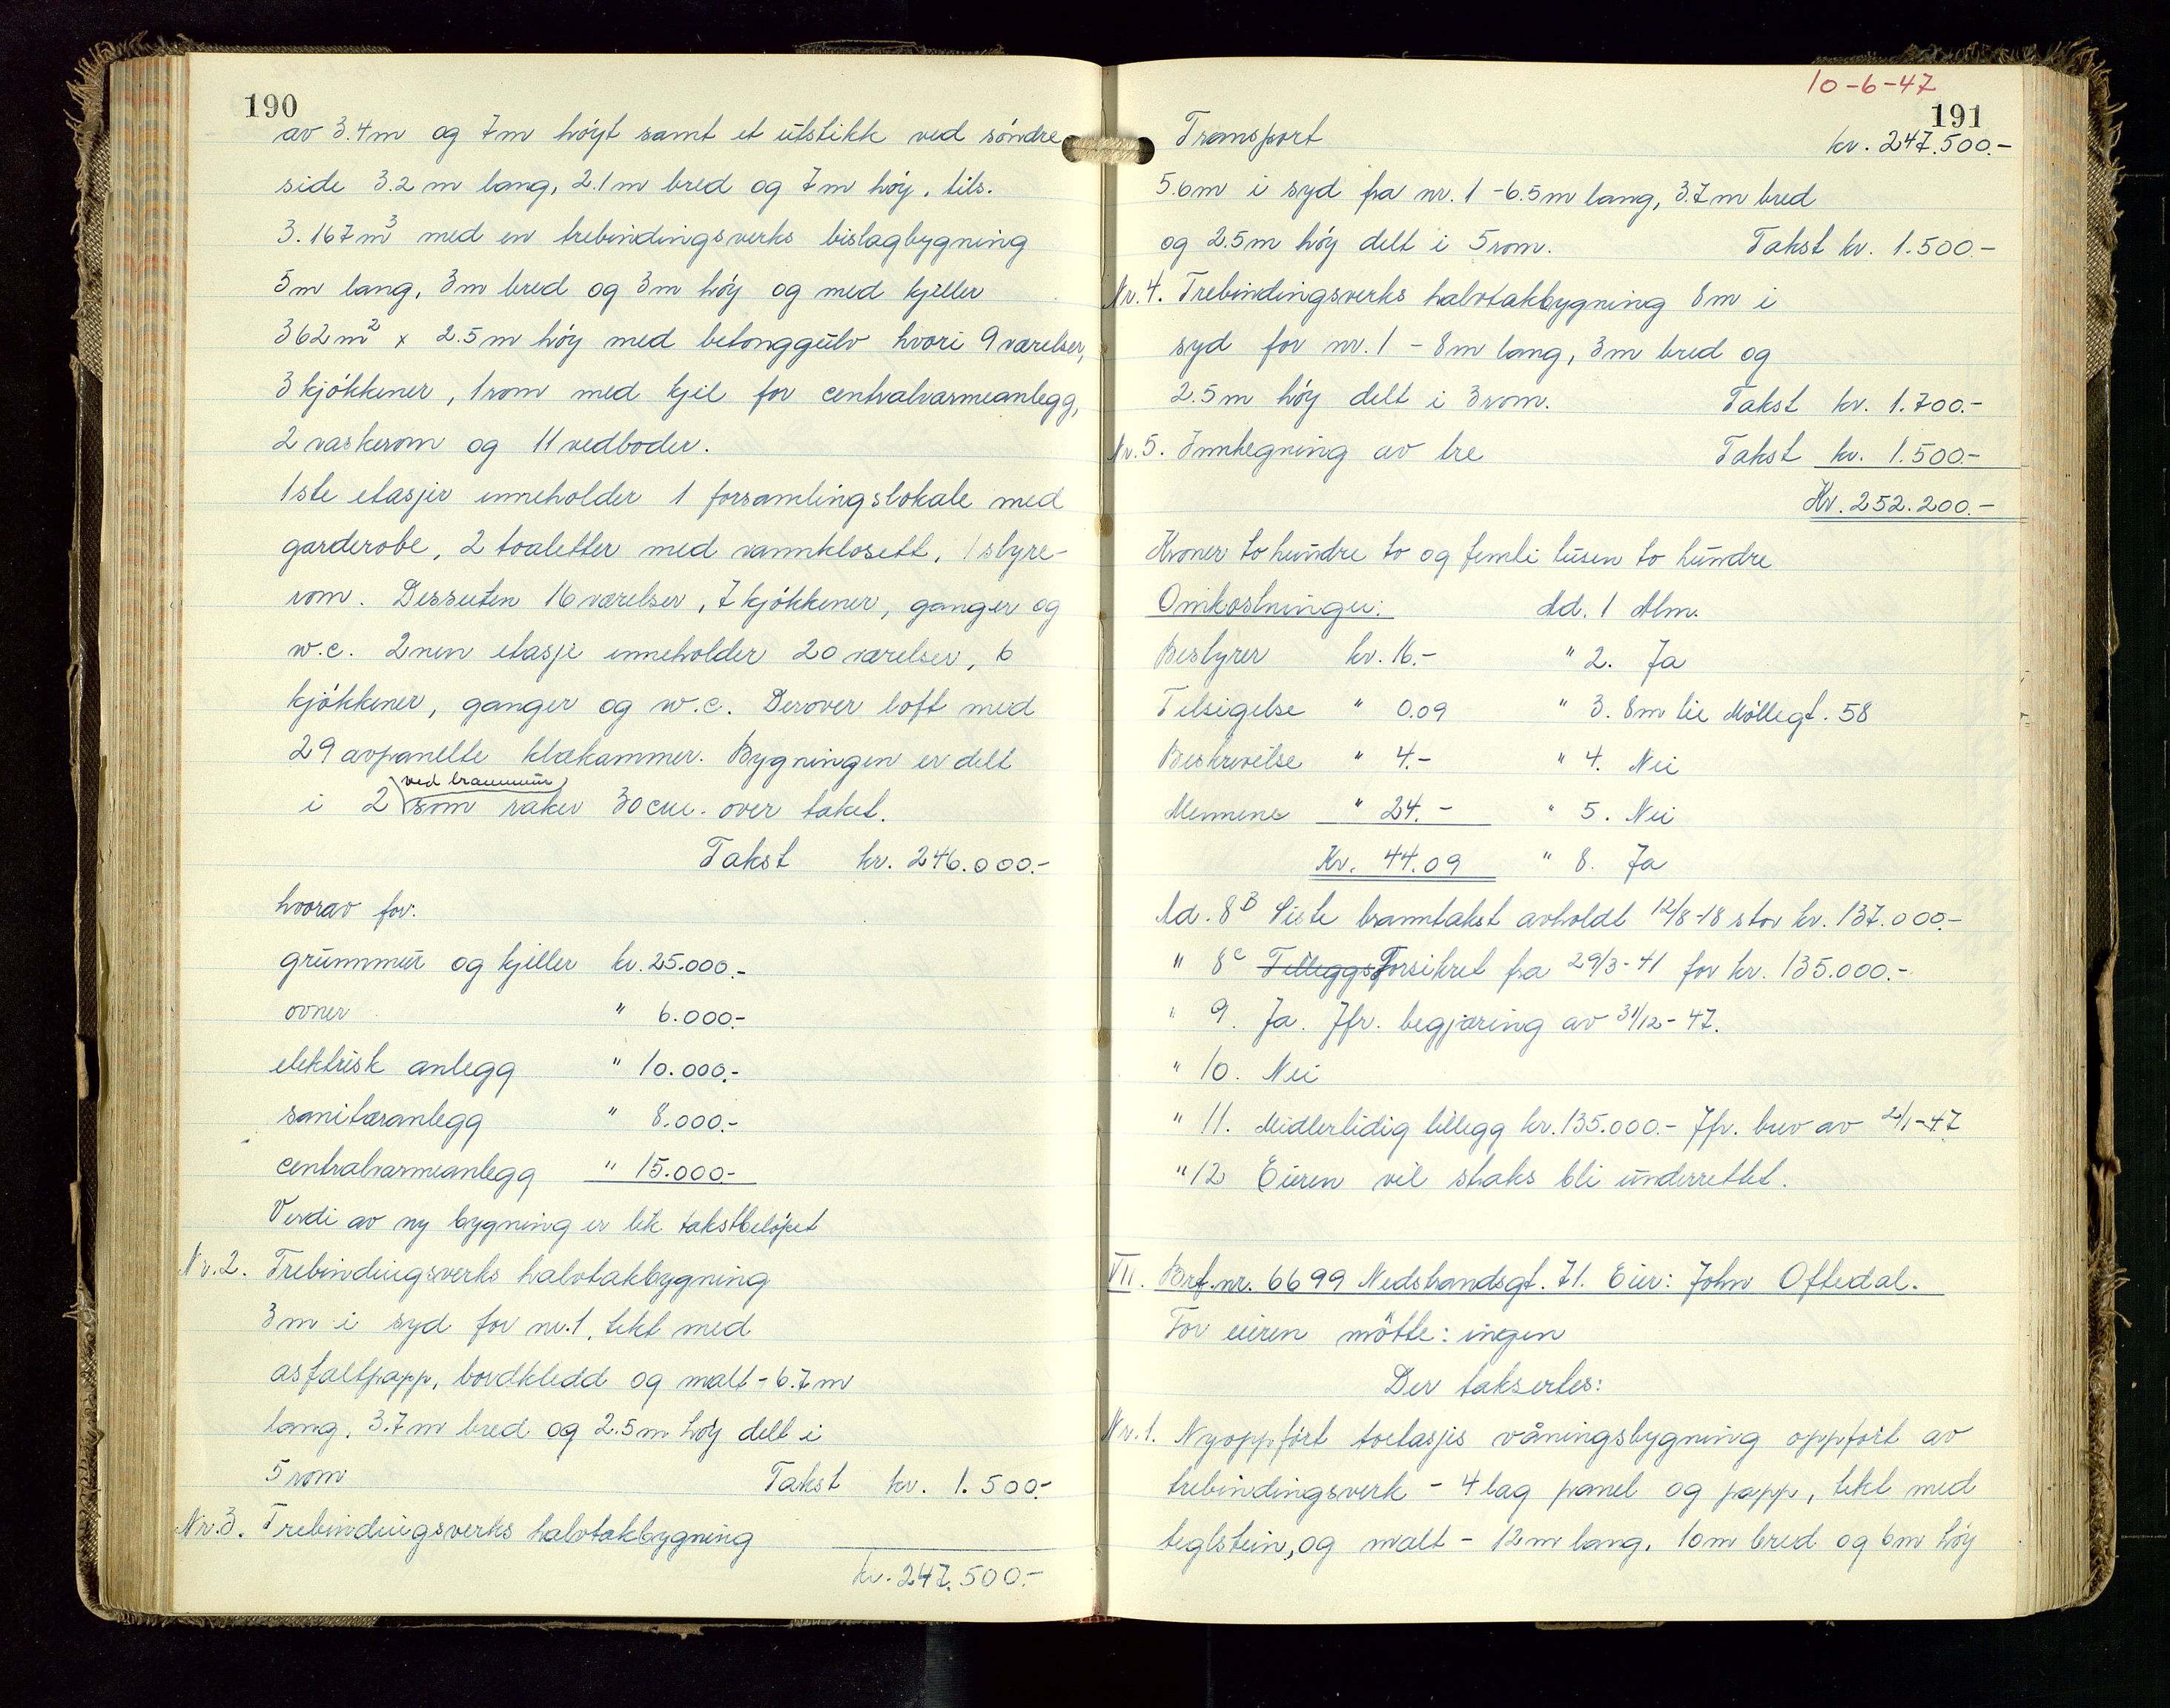 190
av 3.4m og 7m höyt samt et utstikk ved söndre
side 3.2 m lang, 2.1m bred og 7m höy, tils.
3.167m³ med en trebindingsverks bislagbygning
5m lang, 3m bred og 3m höy og med kjeller
362m² x 2.5m höy med betonggulv hvori 9 værelser,
3 kjökkener, 1 rom med kjel for centralvarmeanlegg,
2 vaskerom og 11 vedboder.
1ste etasjer inneholder 1 forsamlingslokale med
garderobe, 2 toaletter med vannklosett, 1 styre-
rom. Dessuten 16 værelser, 7 kjökkener, ganger og
w.c. 2nen etasje inneholder 20 værelser, 6
kjökkener, ganger og w.c. Derover loft med
29 avpanelte klækammer. Bygningen er delt
ved brannmur
i 2 som raker 30 cm. over taket.
Takst kr. 246.000.-
hvorav for:
grunnmur og kjeller kr. 25.000.-
ovner " 6.000.-
elektrisk anlegg " 10.000.-
sanitæranlegg " 8.000.-
centralvarmeanlegg " 15.000.-
Verdi av ny bygning er lik takstbelöpet
Nr. 2. Trebindingsverks halvtakbygning
3m i syd for nr. 1, tekt med
asfaltpapp, bordkledd og malt - 6.7m
lang, 3.7m bred og 2.5m höy delt i
5 rom Takst kr. 1.500.-
Nr. 3. Trebindingsverks halvtakbygning
kr. 247.500.-
10-6-47
191
Transport kr. 247.500.-
5.6m i syd fra nr. 1 - 6.5m lang, 3.7m bred
og 2.5m höy delt i 5 rom. Takst kr. 1.500.-
Nr. 4. Trebindingsverks halvtakbygning 8m i
syd for nr. 1 - 8m lang, 3m bred og
2.5m höy delt i 3 rom. Takst kr. 1.700.-
Nr. 5. Innhegning av tre Takst kr. 1.500.-
Kr. 252.200.-
Kroner to hundre to og femti tusen to hundre
Omkostninger: Ad. 1 Alm.
Bestyrer kr. 16.- " 2. Ja
Tilsigelse " 0.09 " 3. 8m til Möllegt. 58
Beskrivelse " 4.- " 4. Nei
Mennene " 24.- " 5. Nei
Kr. 44.09 " 8. Ja
Ad. 8B Siste branntakst avholdt 12/8-18 stor kr. 137.000.-
" 8c TilleggsForsikret fra 29/3-41 for kr. 135.000.-
" 9. Ja. Jfr. begjæring av 31/12-47.
" 10. Nei
" 11. Midlertidig tillegg kr. 135.000.- Jfr. brev av 2/1-47
" 12 Eieren vil straks bli underrettet.
VII. Brf.nr. 6699 Nedstrandsgt. 71. Eier: John Oftedal.
For eieren mötte: ingen
Der taksertes:
Nr. 1. Nyoppfört toetasjes våningsbygning oppfört av
trebindingsverk - 4 lag panel og papp, tekt med
teglstein, og malt - 12m lang, 10m bred og 6m höy